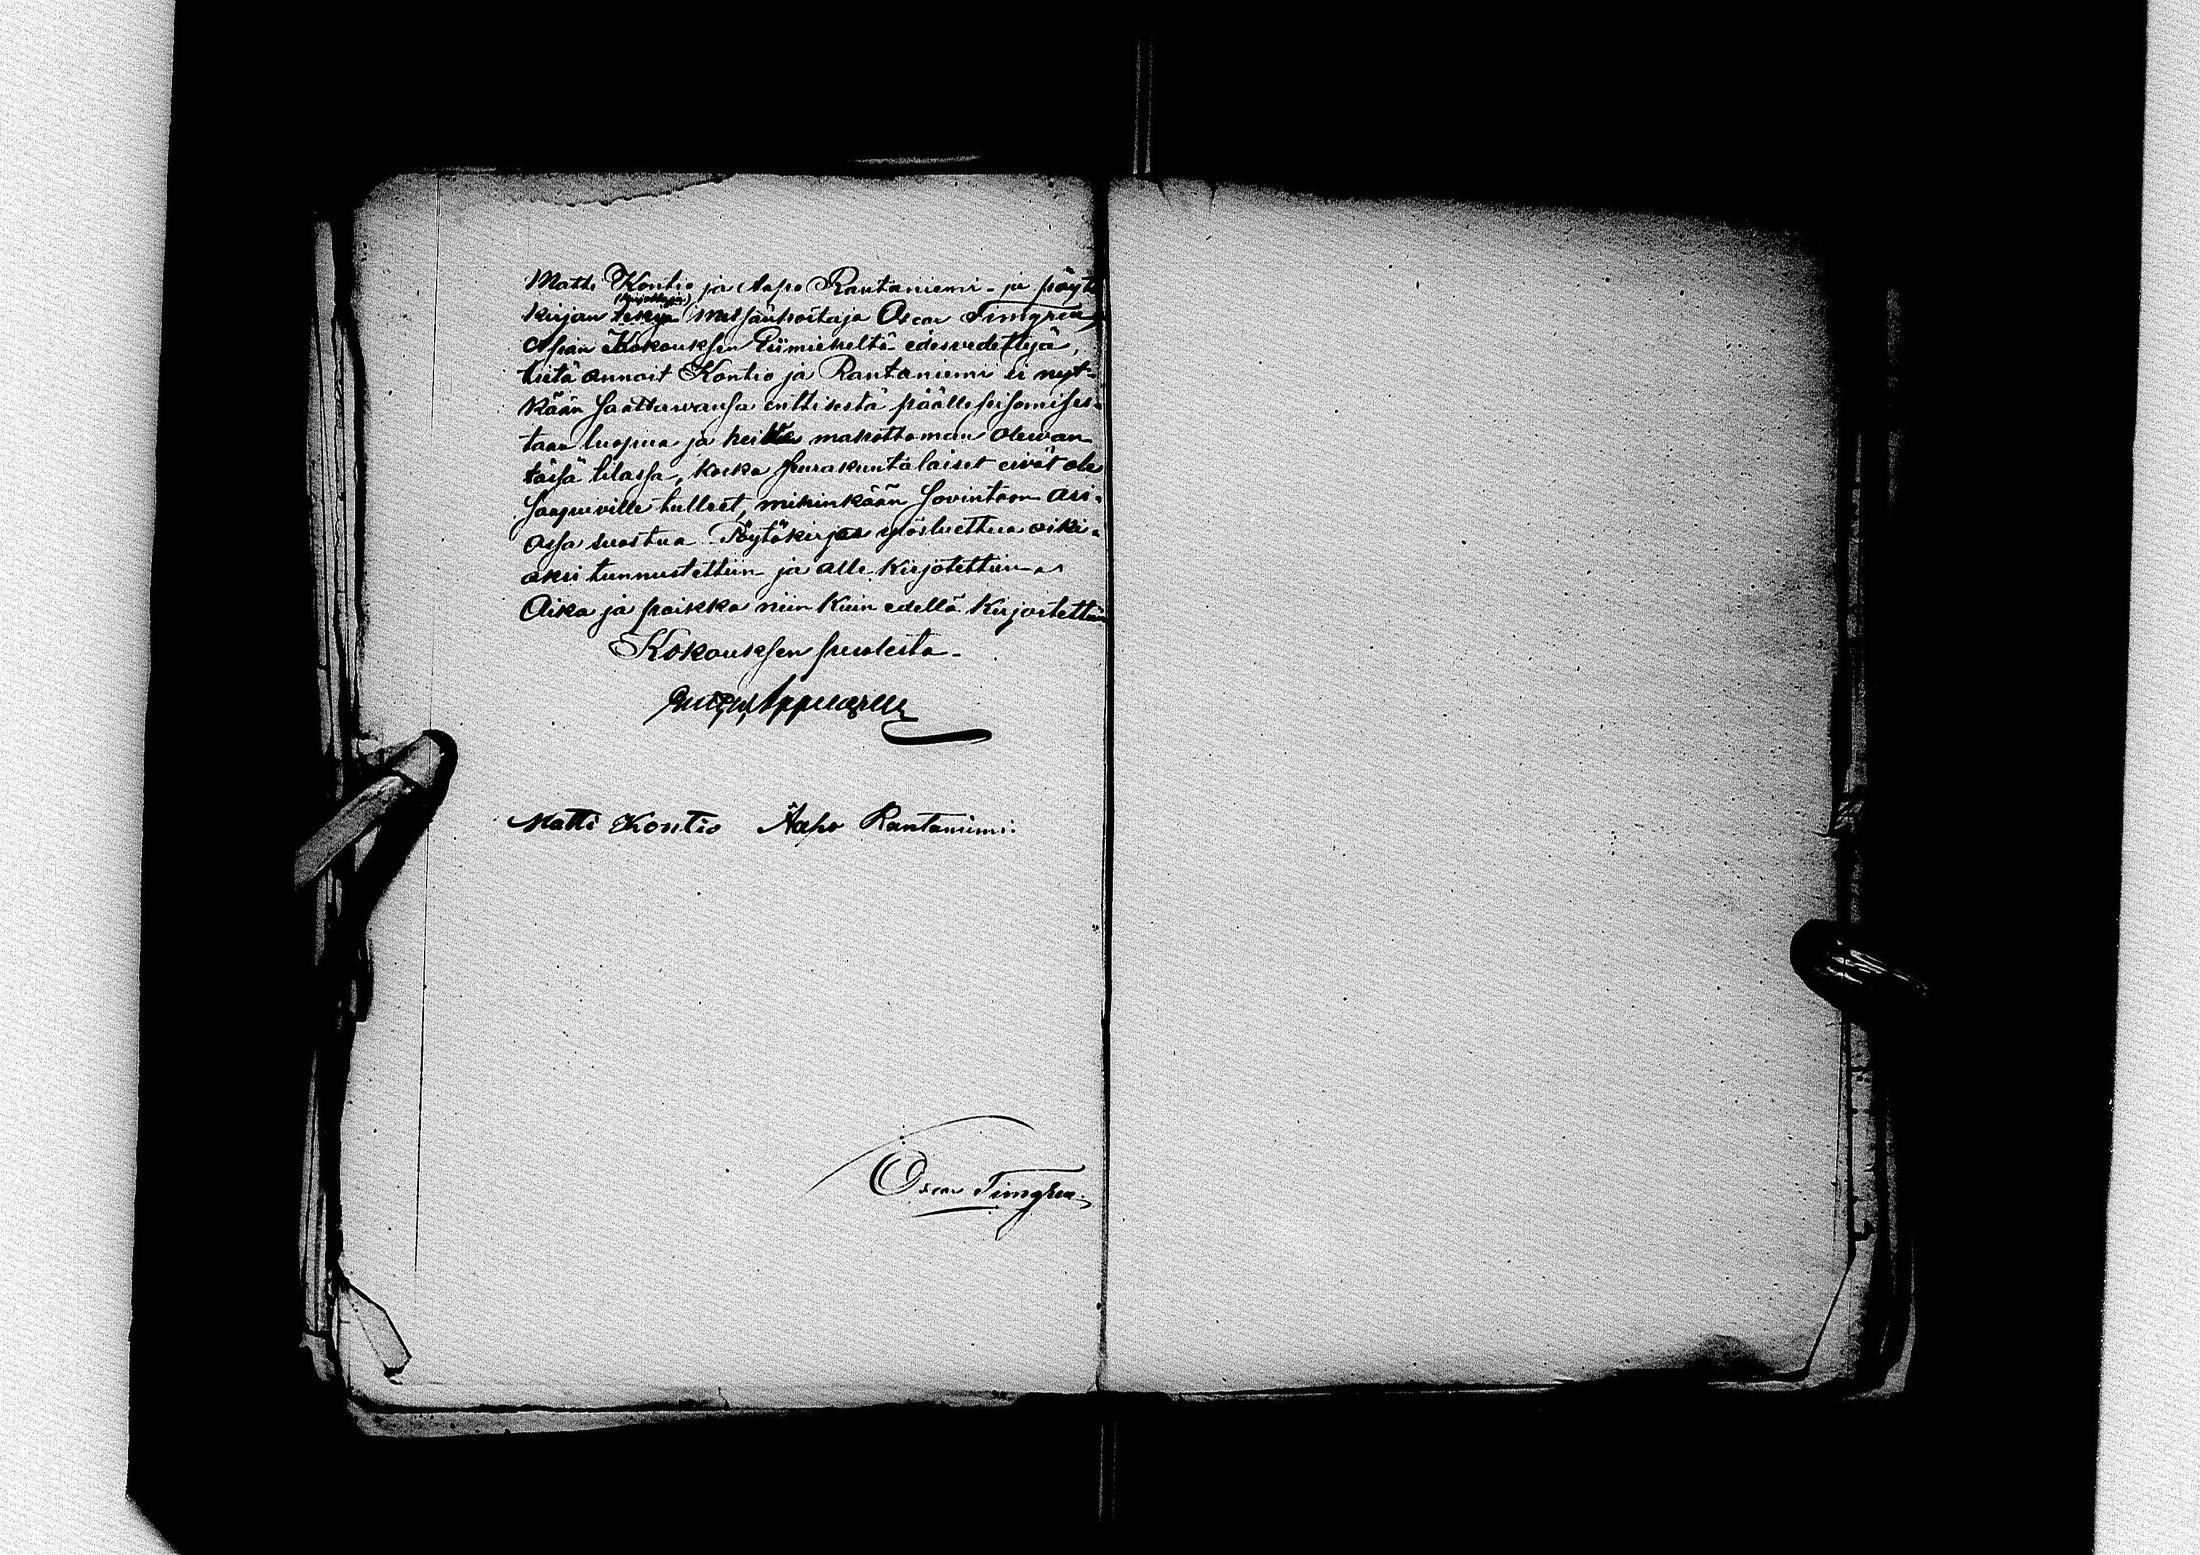 Matti Kontio ja Aapo Rantaniemi - ja pöytä
kirjan tekijä (kirjoittaja) Metsänhoitaja Oscar Timgren,
Asian Kokouksen Esimieheltä edesvedettyä,
tietä annoit Kontio ja Rantaniemi ei nyt-
kään saattawansa entisestä päälleseisomises-
taan luopua ja heille mahottoman olewan
täsä tilassa, koska seurakuntalaiset eivät ole
saapuville tulleet, mihinkään sovintoon asi-
assa suostua. Pöytäkirjan ylösluettua oiki-
aksi tunnustettiin ja alle kirjotettiin.
Aika ja paikka niin kuin edellä kirjoitettiin
Kokouksen puolesta.
Matti Kontio Aapo Rantaniemi.
Oscar Timgren.